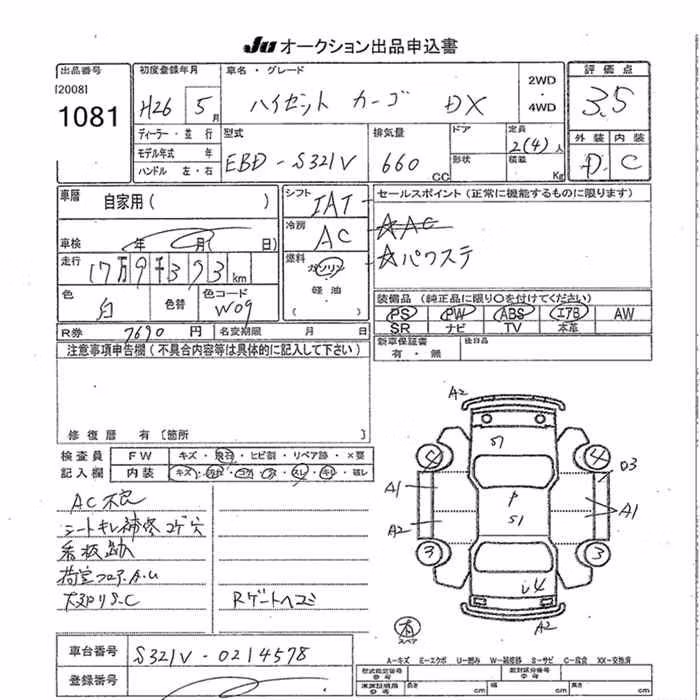 JU オークション出品申込書
出品番号 初度登録年月 車名・グレード 2WD ・ 4WD 評価点
[2008]
1081
H26 5月 ハイゼット カーゴ DX 3.5
ディーラー・並行 型式 排気量 ドア 定員 外装 内装
モデル年式 年 EBD-S321V 660 CC 形状 2(4)人 D C
ハンドル 左・右 積載 Kg
車歴 自家用( ) シフト IAT セールスポイント(正常に機能するものに限ります)
冷房 AC ☆AC
車検 年 月 日) 燃料 ガソリン ☆パワステ
走行 17万9千393km 軽油
色 白 色替 色コード W09 ( )
装備品(純正品に限り○を付けてください)
PS PW ABS エアB AW
R券 7690円 名変期限 月 日 SR ナビ TV 本革
注意事項申告欄(不具合内容等は具体的に記入して下さい) 新車保証書 後日品
有・無
修復歴 有〔箇所
検査員 FW キズ・飛石・ヒビ割・リペア跡・×要
記入欄 内装
AC不良
シートキレ補修コゲ穴
看板跡
荷室フロアA.U
Rゲートヘコミ
A2
51
4 4 03
A1 P A1
A2 51
3 3
U4
A2
スペア
車台番号 S321V-0214578
A-キズ E-エクボ U-凹み W-補修跡 S-サビ C-腐食 XX-交換済
登録番号 型式指定番号 参考 類別区分番号 参考
長さ cm 幅 cm 高さ cm